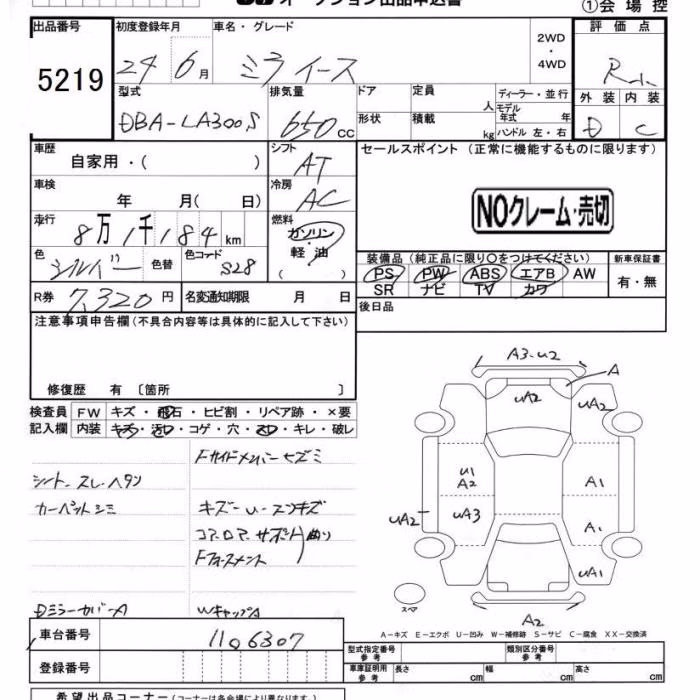 オークション出品申込書
①会場控
出品番号
5219
初度登録年月
24年6月
車名・グレード
ミライース
2WD
・
4WD
評価点
R
外装 内装
D C
型式
DBA-LA300S
排気量
650cc
ドア
定員
人
ディーラー・並行
モデル年式 年
形状
積載
kg
ハンドル 左・右
車歴
自家用・( )
シフト
AT
セールスポイント (正常に機能するものに限ります)
車検
年 月( 日)
冷房
AC
NOクレーム・売切
走行
8万1千184km
燃料
ガソリン
・
軽油
( )
色
シルバー
色替
色コード
S28
装備品 (純正品に限り○をつけてください)
PS PW ABS エアB AW
SR ナビ TV カワ
新車保証書
有・無
R券
7,320円
名変通知期限 月 日
後日品
注意事項申告欄(不具合内容等は具体的に記入して下さい)
修復歴 有〔箇所 〕
検査員記入欄
FW キズ・飛石・ヒビ割・リペア跡・×要
内装 キズ・汚レ・コゲ・穴・スレ・キレ・破レ
Fサイドメンバーセズミ
シートスレヘタリ
カーペットシミ
キズ-U-スリキズ
コアロアサポート
Dミラーカバー-A
WキャップA
A3-U2
A
UA2
UA2
U1
A2
A1
UA2
UA3
A1
UA1
スペア
A2
A-キズ E-エクボ U-凹み W-補修跡 S-サビ C-腐食 XX-交換済
車台番号
1106307
登録番号
型式指定番号
参考
類別区分番号
参考
車庫証明用
参考
長さ cm
幅 cm
高さ cm
希望出品コーナー(コーナーは各会場により異なります。)